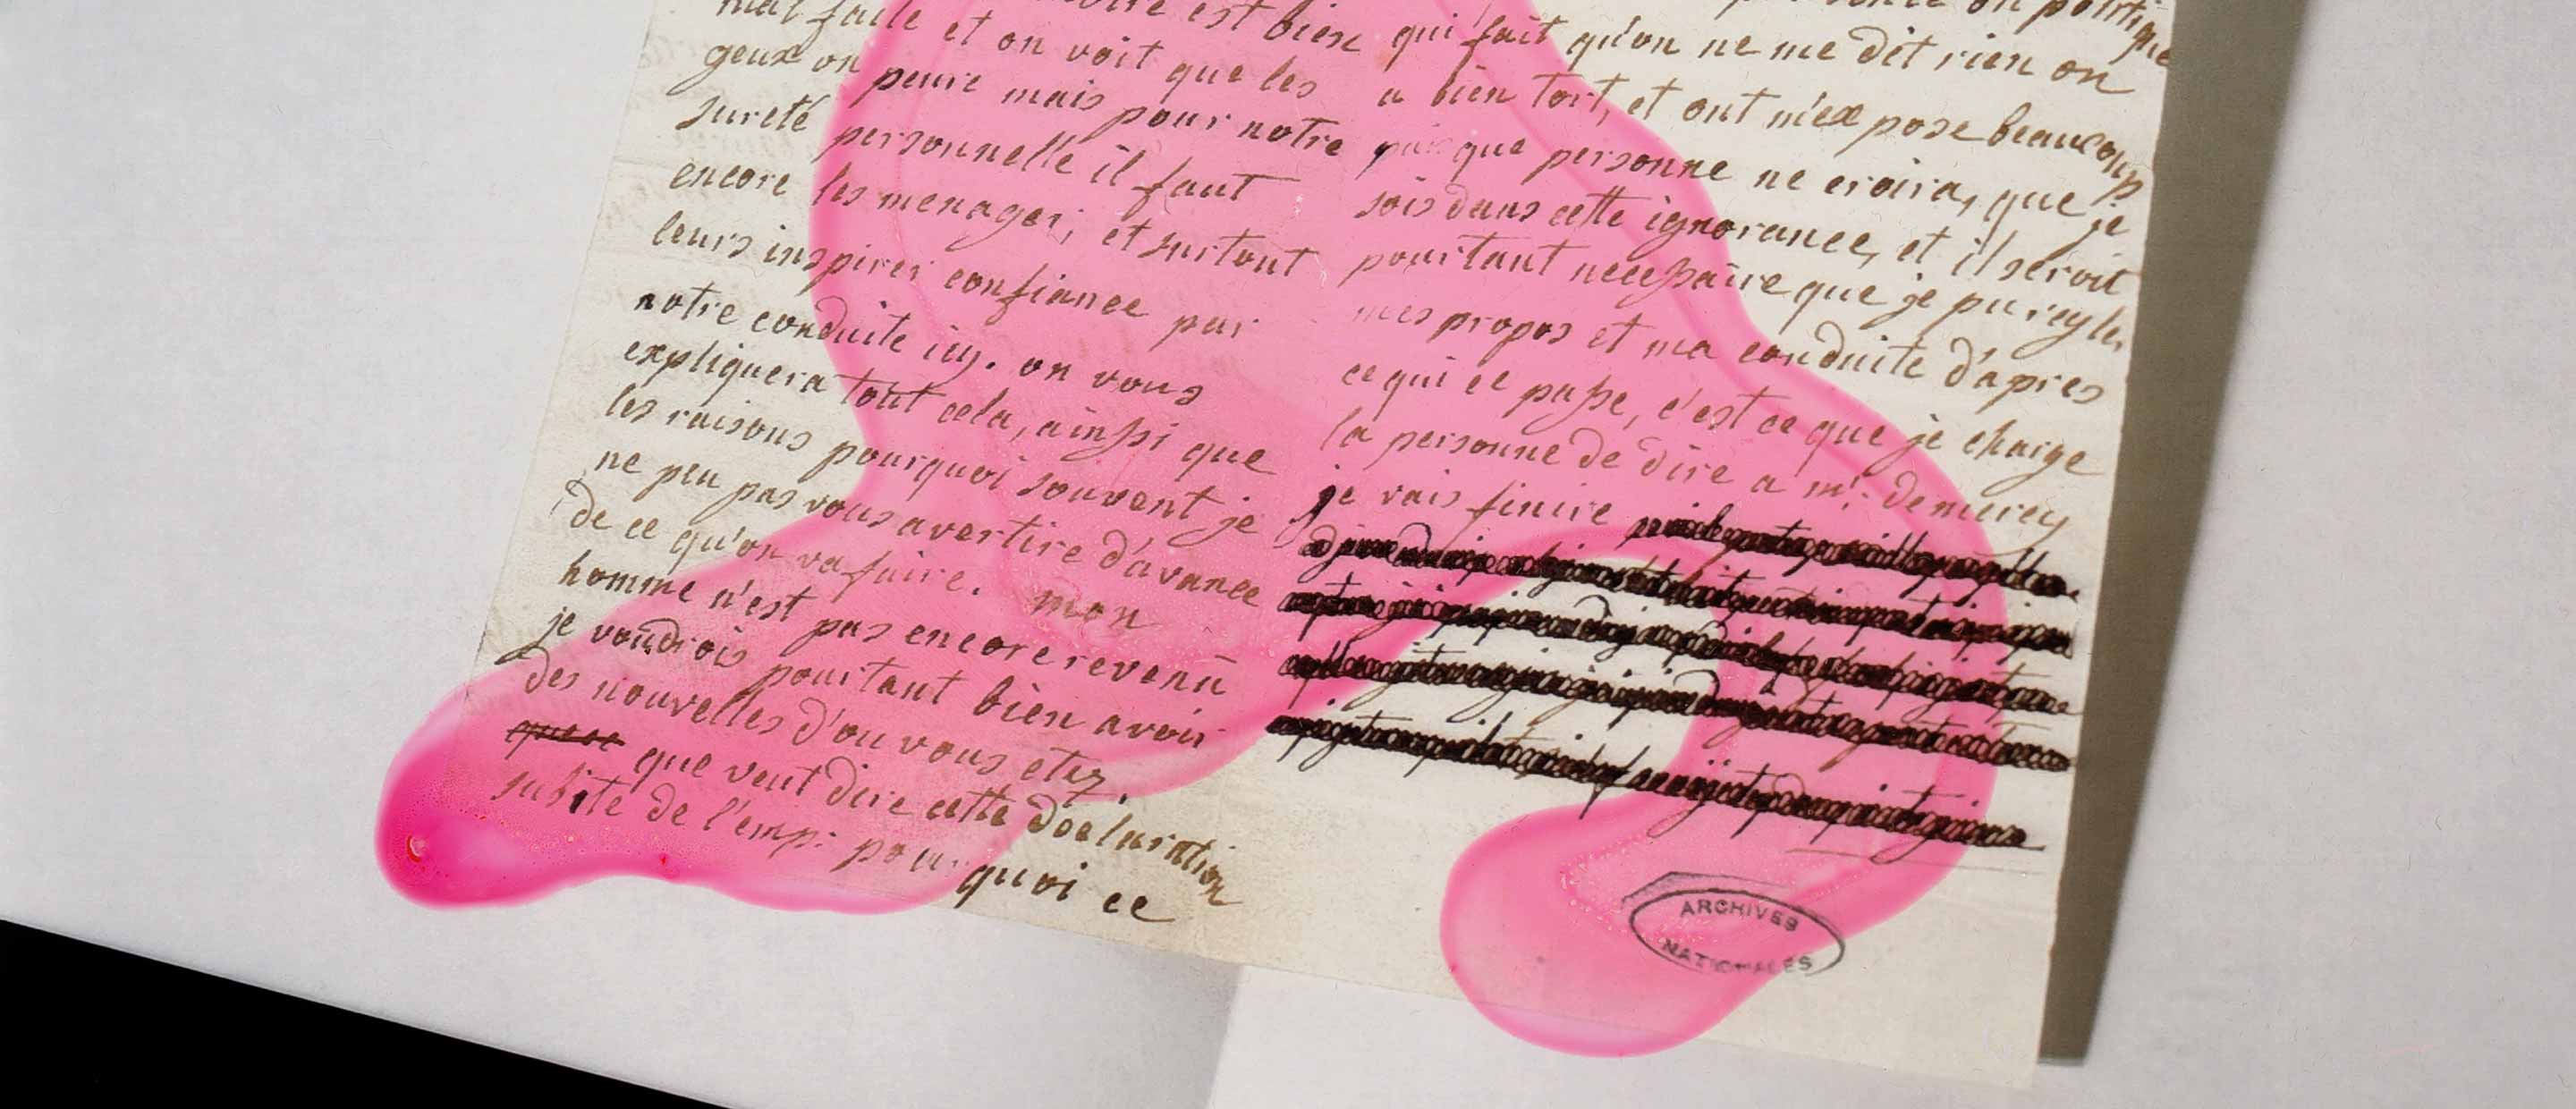 mal faite et on voit que les
geux on peure mais pour notre
sureté personnelle il faut
encore les menager; et surtout
leurs inspirer confiance par
notre conduite icy. on vous
expliquera tout cela, ainssi que
les raisons pourquoi souvent je
ne peu pas vous avertire d'avance
de ce qu'on va faire. mon
homme n'est pas encore revenu
je voudrois pourtant bien avoir
des nouvelles d'ou vous etez.
que veut dire cette declaration
subite de l'emp: pourquoi ce
est bien
politique
qui fait qu'on ne me dit rien on
a bien tort, et ont m'expose beaucoup
puisque personne ne croira, que je
sois dans cette ignorance, et il seroit
pourtant necessaire que je pu regler
mes propos et ma conduite d'apres
ce qui ce passe, c'est ce que je charge
la personne de dire a mr. de mercy
je vais finire
ARCHIVES
NATIONALES